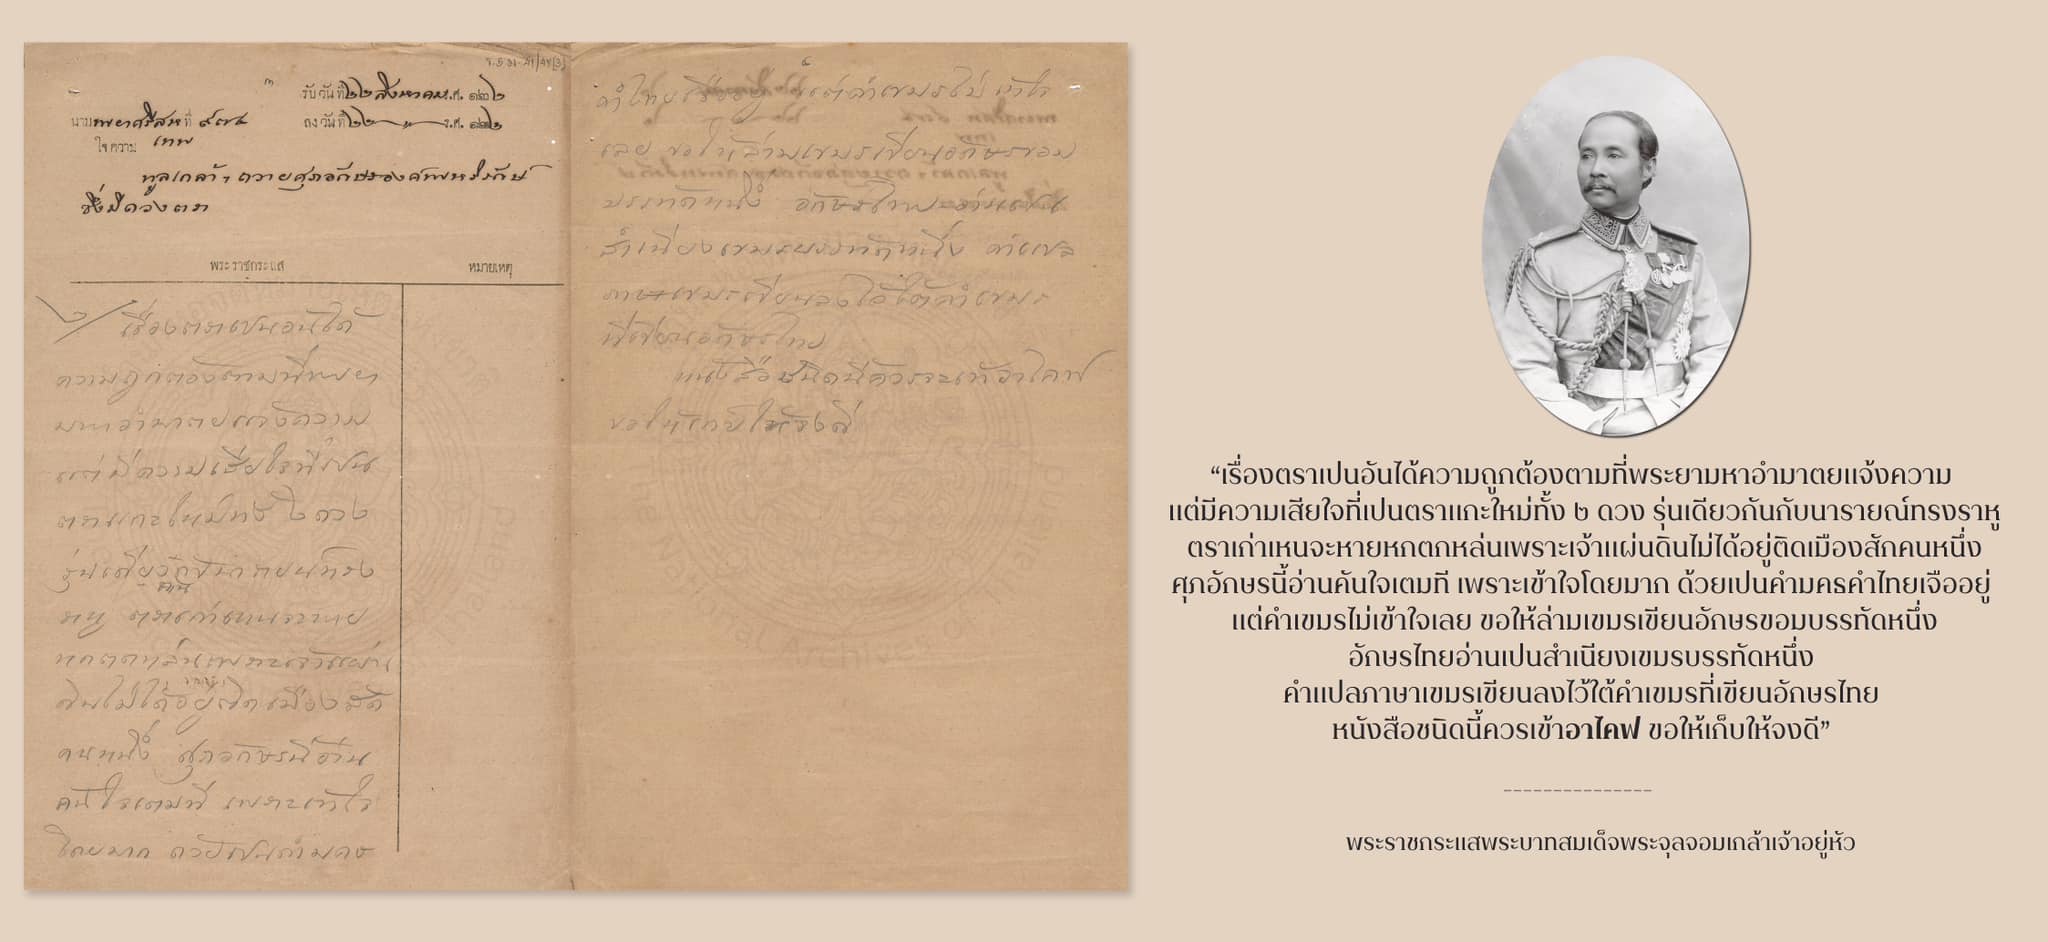 ร.๕ ว ๓๑
รับ วัน ที่ ๒๒ สิงหาคม ร.ศ. ๑๒๒
นาม พยาศรีสหเทพ ที่
ลง วัน ที่ ๒๒ " ร.ศ. ๑๒๒
ใจ ความ
ทูลเกล้าฯ ถวายศุภอักษรองค์พหริรักษ์
ซึ่งมีดวงตรา
พระ ราชกระแส
หมายเหตุ
เรื่องตราเปนอันได้
ความถูกต้องตามที่พระยา
มหาอำมาตยแจ้งความ
แต่มีความเสียใจที่เปน
ตราแกะใหม่ทั้ง ๒ ดวง
รุ่นเดียวกันกับนารายน์ทรง
ราหู ตราเก่าเหนจะหาย
หกตกหล่นเพราะเจ้าแผ่น
ดินไม่ได้อยู่ติดเมืองสัก
คนหนึ่ง ศุภอักษรนี้อ่าน
คันใจเตมที เพราะเข้าใจ
โดยมาก ด้วยเปนคำมคธ
คำไทยเจืออยู่ แต่คำเขมรไม่เข้าใจ
เลย ขอให้ล่ามเขมรเขียนอักษรขอม
บรรทัดหนึ่ง อักษรไทยอ่านเปน
สำเนียงเขมรบรรทัดหนึ่ง คำแปล
ภาษาเขมรเขียนลงไว้ใต้คำเขมร
ที่เขียนอักษรไทย
หนังสือชนิดนี้ควรจะเข้าอาไคฟ
ขอให้เกบให้จงดี
“เรื่องตราเปนอันได้ความถูกต้องตามที่พระยามหาอำมาตยแจ้งความ
แต่มีความเสียใจที่เปนตราแกะใหม่ทั้ง ๒ ดวง รุ่นเดียวกันกับนารายณ์ทรงราหู
ตราเก่าเหนจะหายหกตกหล่นเพราะเจ้าแผ่นดินไม่ได้อยู่ติดเมืองสักคนหนึ่ง
ศุภอักษรนี้อ่านคันใจเตมที เพราะเข้าใจโดยมาก ด้วยเปนคำมคธคำไทยเจืออยู่
แต่คำเขมรไม่เข้าใจเลย ขอให้ล่ามเขมรเขียนอักษรขอมบรรทัดหนึ่ง
อักษรไทยอ่านเปนสำเนียงเขมรบรรทัดหนึ่ง
คำแปลภาษาเขมรเขียนลงไว้ใต้คำเขมรที่เขียนอักษรไทย
หนังสือชนิดนี้ควรเข้าอาไคฟ ขอให้เก็บให้จงดี”
พระราชกระแสพระบาทสมเด็จพระจุลจอมเกล้าเจ้าอยู่หัว